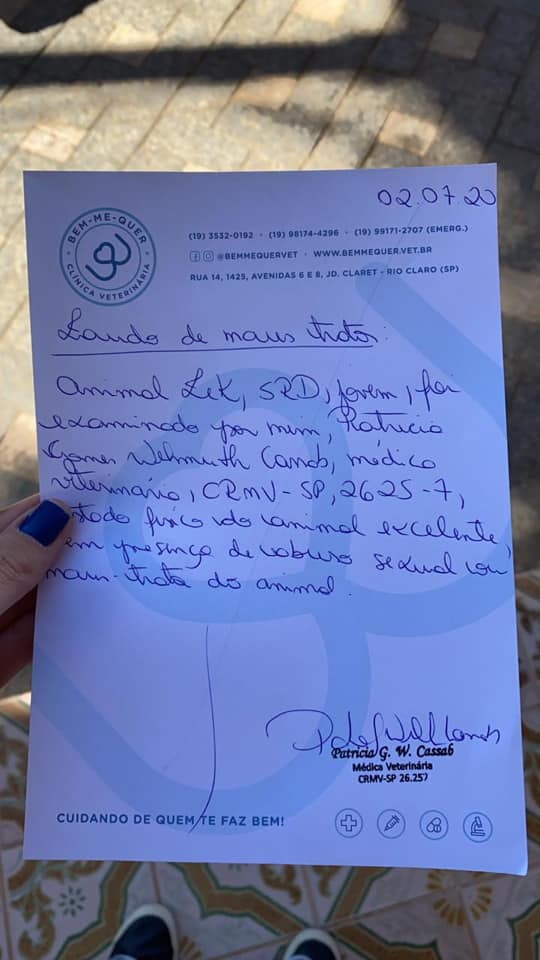 02.07.20
BEM-ME-QUER
CLÍNICA VETERINÁRIA
(19) 3532-0192 • (19) 98174-4296 • (19) 99171-2707 (EMERG.)
@BEMMEQUERVET • WWW.BEMMEQUER.VET.BR
RUA 14, 1425, AVENIDAS 6 E 8, JD. CLARET - RIO CLARO (SP)
Laudo de maus tratos
Animal Zek, SRD, jovem, foi
examinado por mim, Patricia
Gomes Wehmuth Cassab, médica
veterinária, CRMV-SP, 2625-7,
estado físico do animal excelente,
sem presença de abuso sexual ou
maus-trato do animal.
Patricia G. W. Cassab
Médica Veterinária
CRMV-SP 26.257
CUIDANDO DE QUEM TE FAZ BEM!